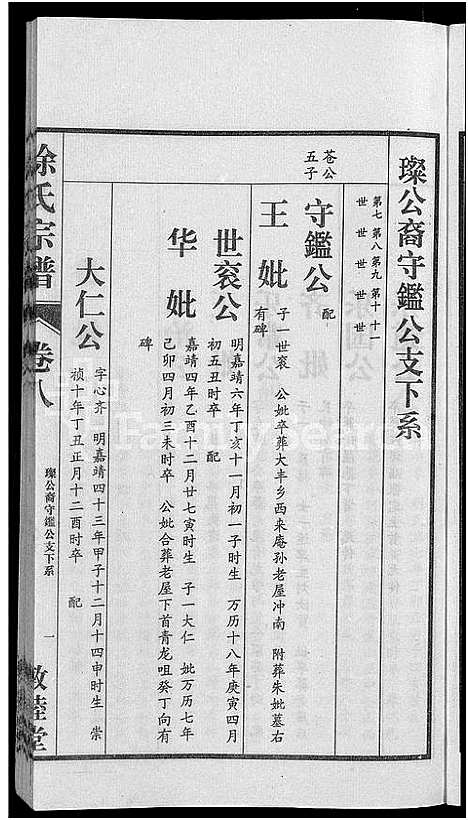 璨公裔守鑑公支下系
第七世 第八世 第九世 第十世 十一世
苍公五子
守鑑公 配
王妣 子一世衮 公妣卒葬大丰乡西来庵孙老屋冲南 附葬朱妣墓右
有碑
世衮公 明嘉靖六年丁亥十一月初一子时生 万历十八年庚寅四月
初五丑时卒 配
华妣 嘉靖四年乙酉十二月廿七寅时生 子一大仁 妣万历七年
己卯四月初三未时卒 公妣合葬老屋下首青龙咀癸丁向有
碑
大仁公 字心齐 明嘉靖四十三年甲子十二月十四申时生 崇
祯十年丁丑正月十二酉时卒 配
徐氏宗谱
卷八
璨公裔守鑑公支下系
一
敦睦堂